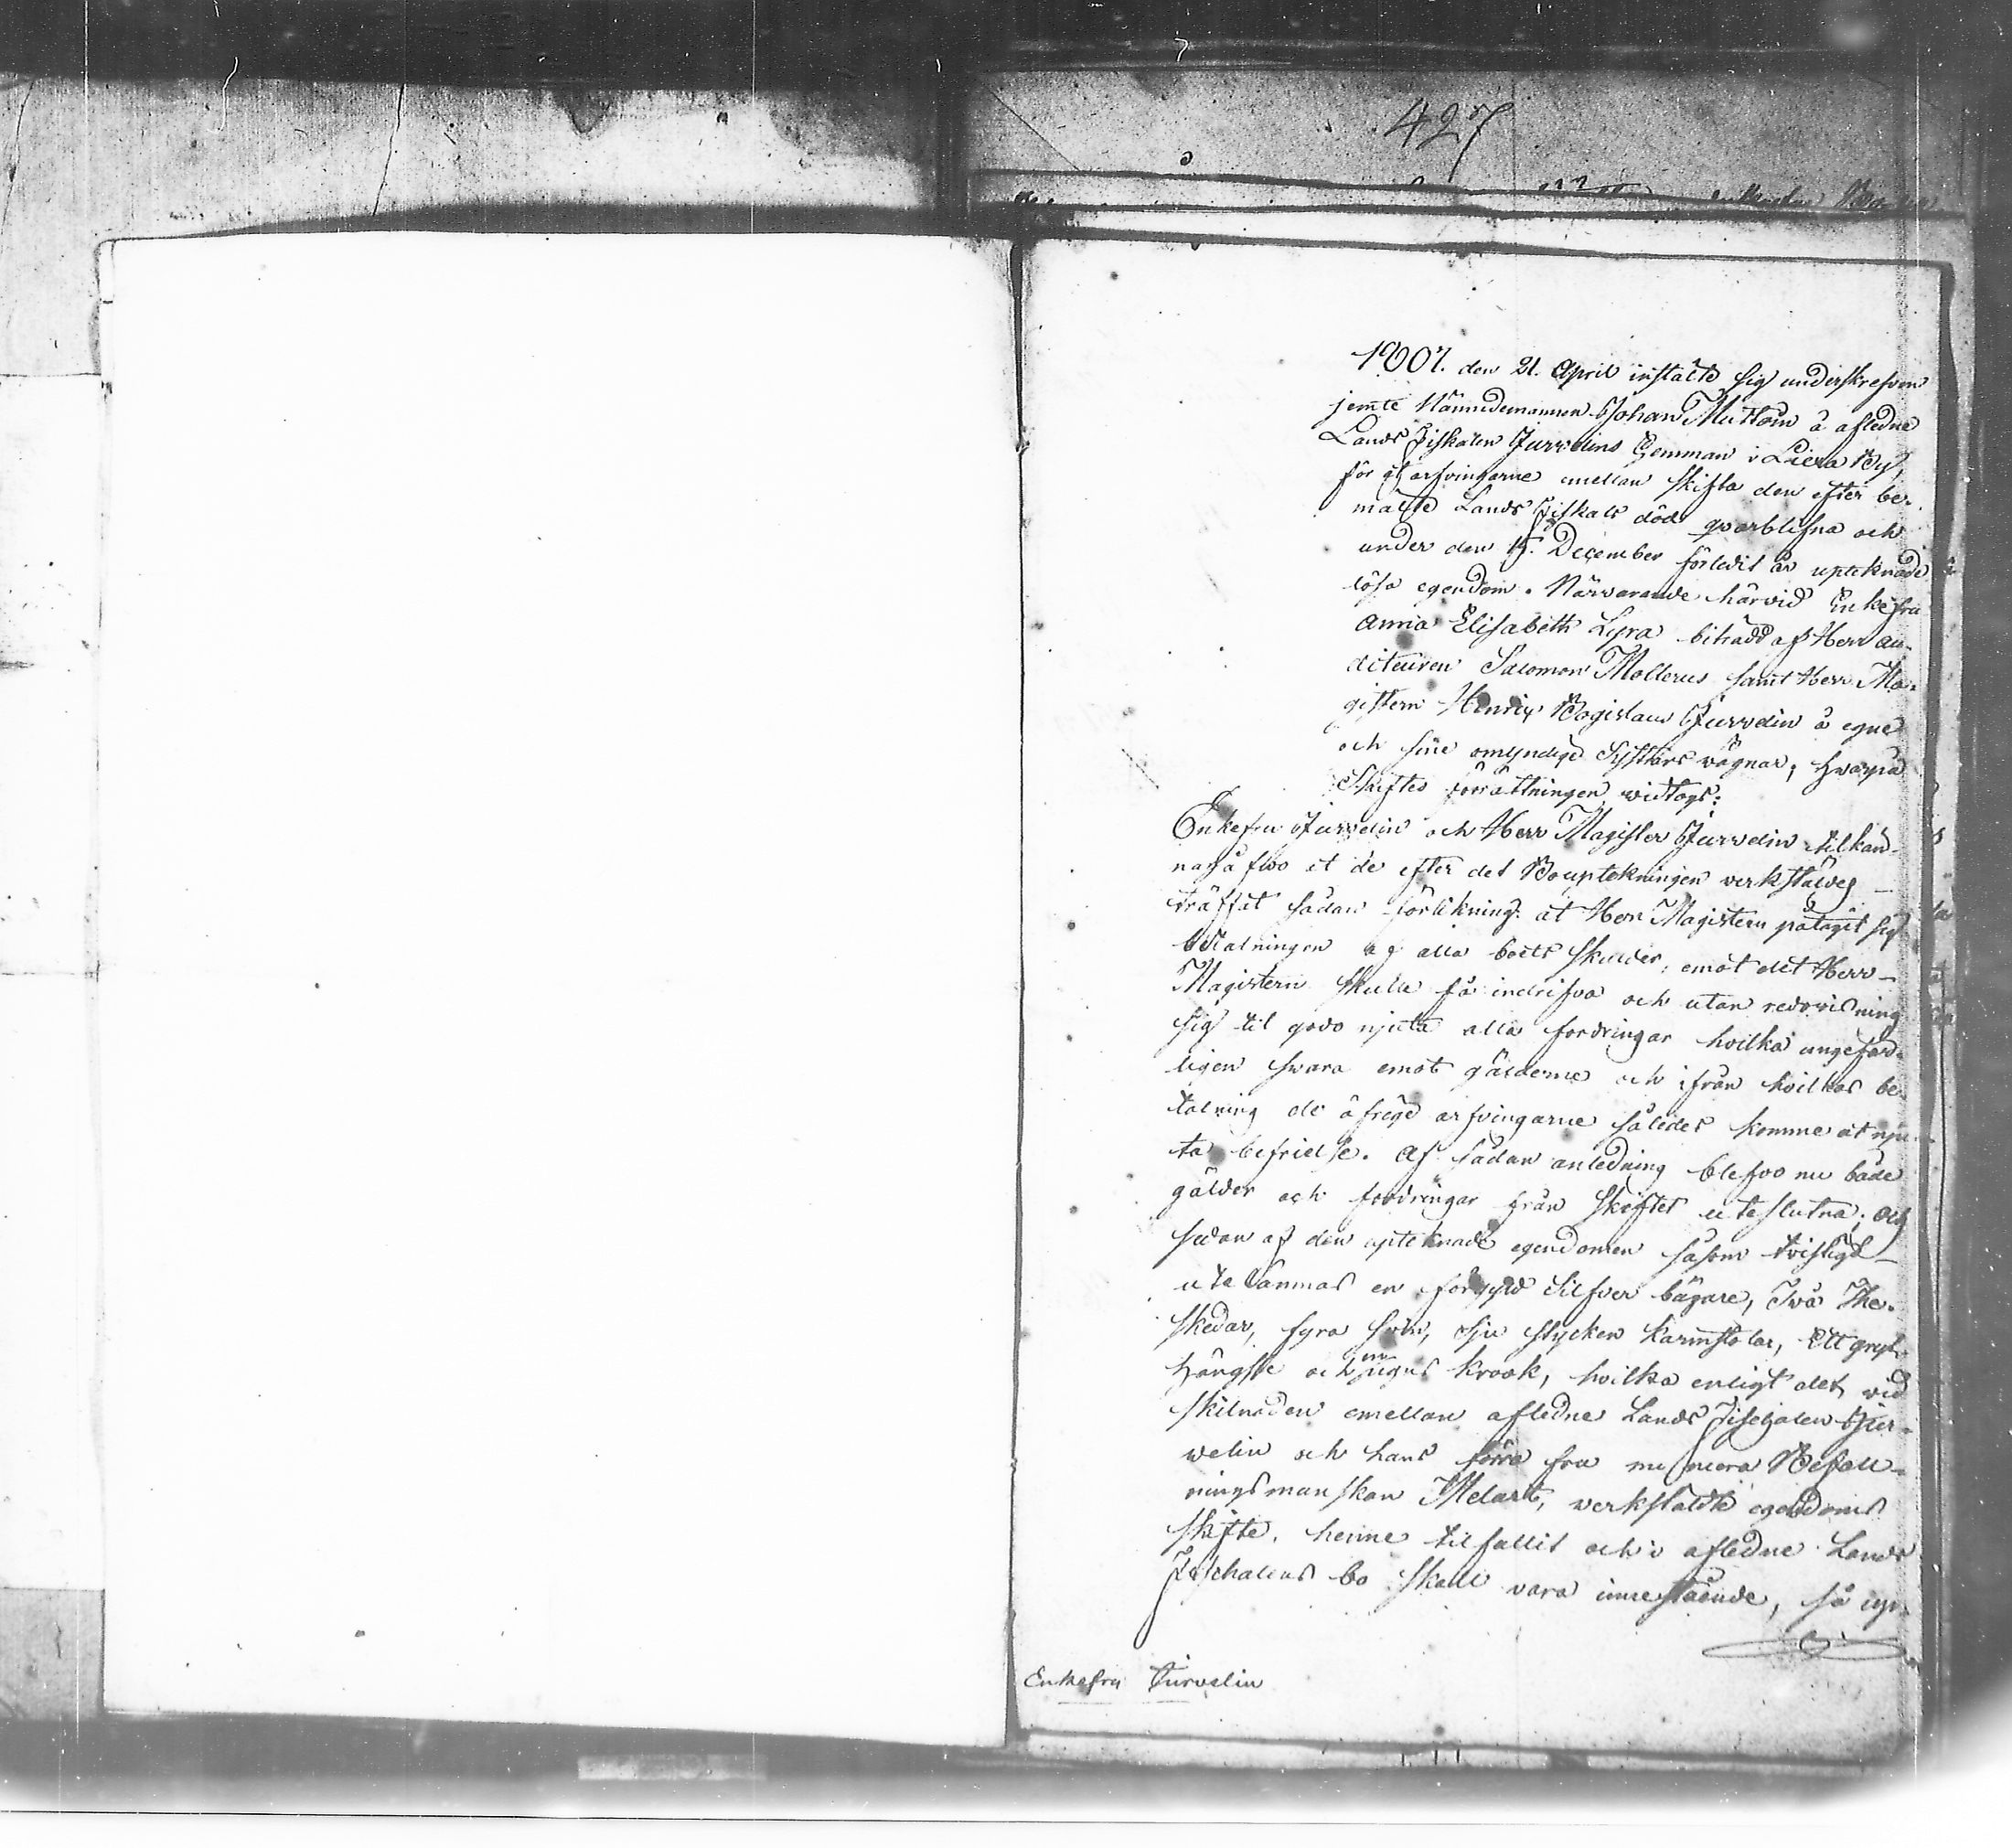 427
1807. den 21. April instälte sig underskrefven
jemte Nämndemannen Johan Mattson å afledne
Lands Fiskalen Jurvelins hemman i Liexa By,
för at arfvingarne emellan skifta den efter be-
mälte Lands Fiskals död qvarblefna och
under den 15. December förledit år uptecknade
lösa egendom. Närvarande härvid Enkefru
Anna Elisabeth Lyra biträdd af Herr Au-
diteuren Salomon Mollerus samt Herr Ma-
gistern Henric Bogislaus Jurvelin å egne
och sine omyndige Systkars vägnar; hvarpå
Skiftes förrättningen vidtogs:
Enkefru Jurvelin och Herr Magister Jurvelin tilkän-
nagåfvo at de efter det Bouptekningen verkstäldes
träffat sådan förlikning: at Herr Magistern påtagit sig
betalningen af alla boets skulder, emot det Herr
Magistern skulle få indrifva och utan redovisning
sig til godo njuta alla fordringar hvilka ungefär-
ligen svara emot gälderne och ifrån hvilkas be-
talning de öfrige arfvingarne således komme at nju-
ta befrielse. Af sådan anledning blefvo nu både
gälder och fordringar från Skiftet uteslutna; och
sedan af den uptecknade egendomen såsom tvistigt
utelämnas en förgyld Silfver bägare, Två The-
skedar, fyra svin, sju stycken karmstolar, Ett gryt-
hängsle och en ugns krook, hvilka enligt det, vid
skilnaden emellan afledne Lands Fischalen Jur-
velin och hans förra fru nu mera Befall-
ningsmanskan Melart, verkstälde egendoms
skifte, henne tilfallit och i afledne Lands
Fischalens bo skall vara innestående, så
Enkefru Jurvelin